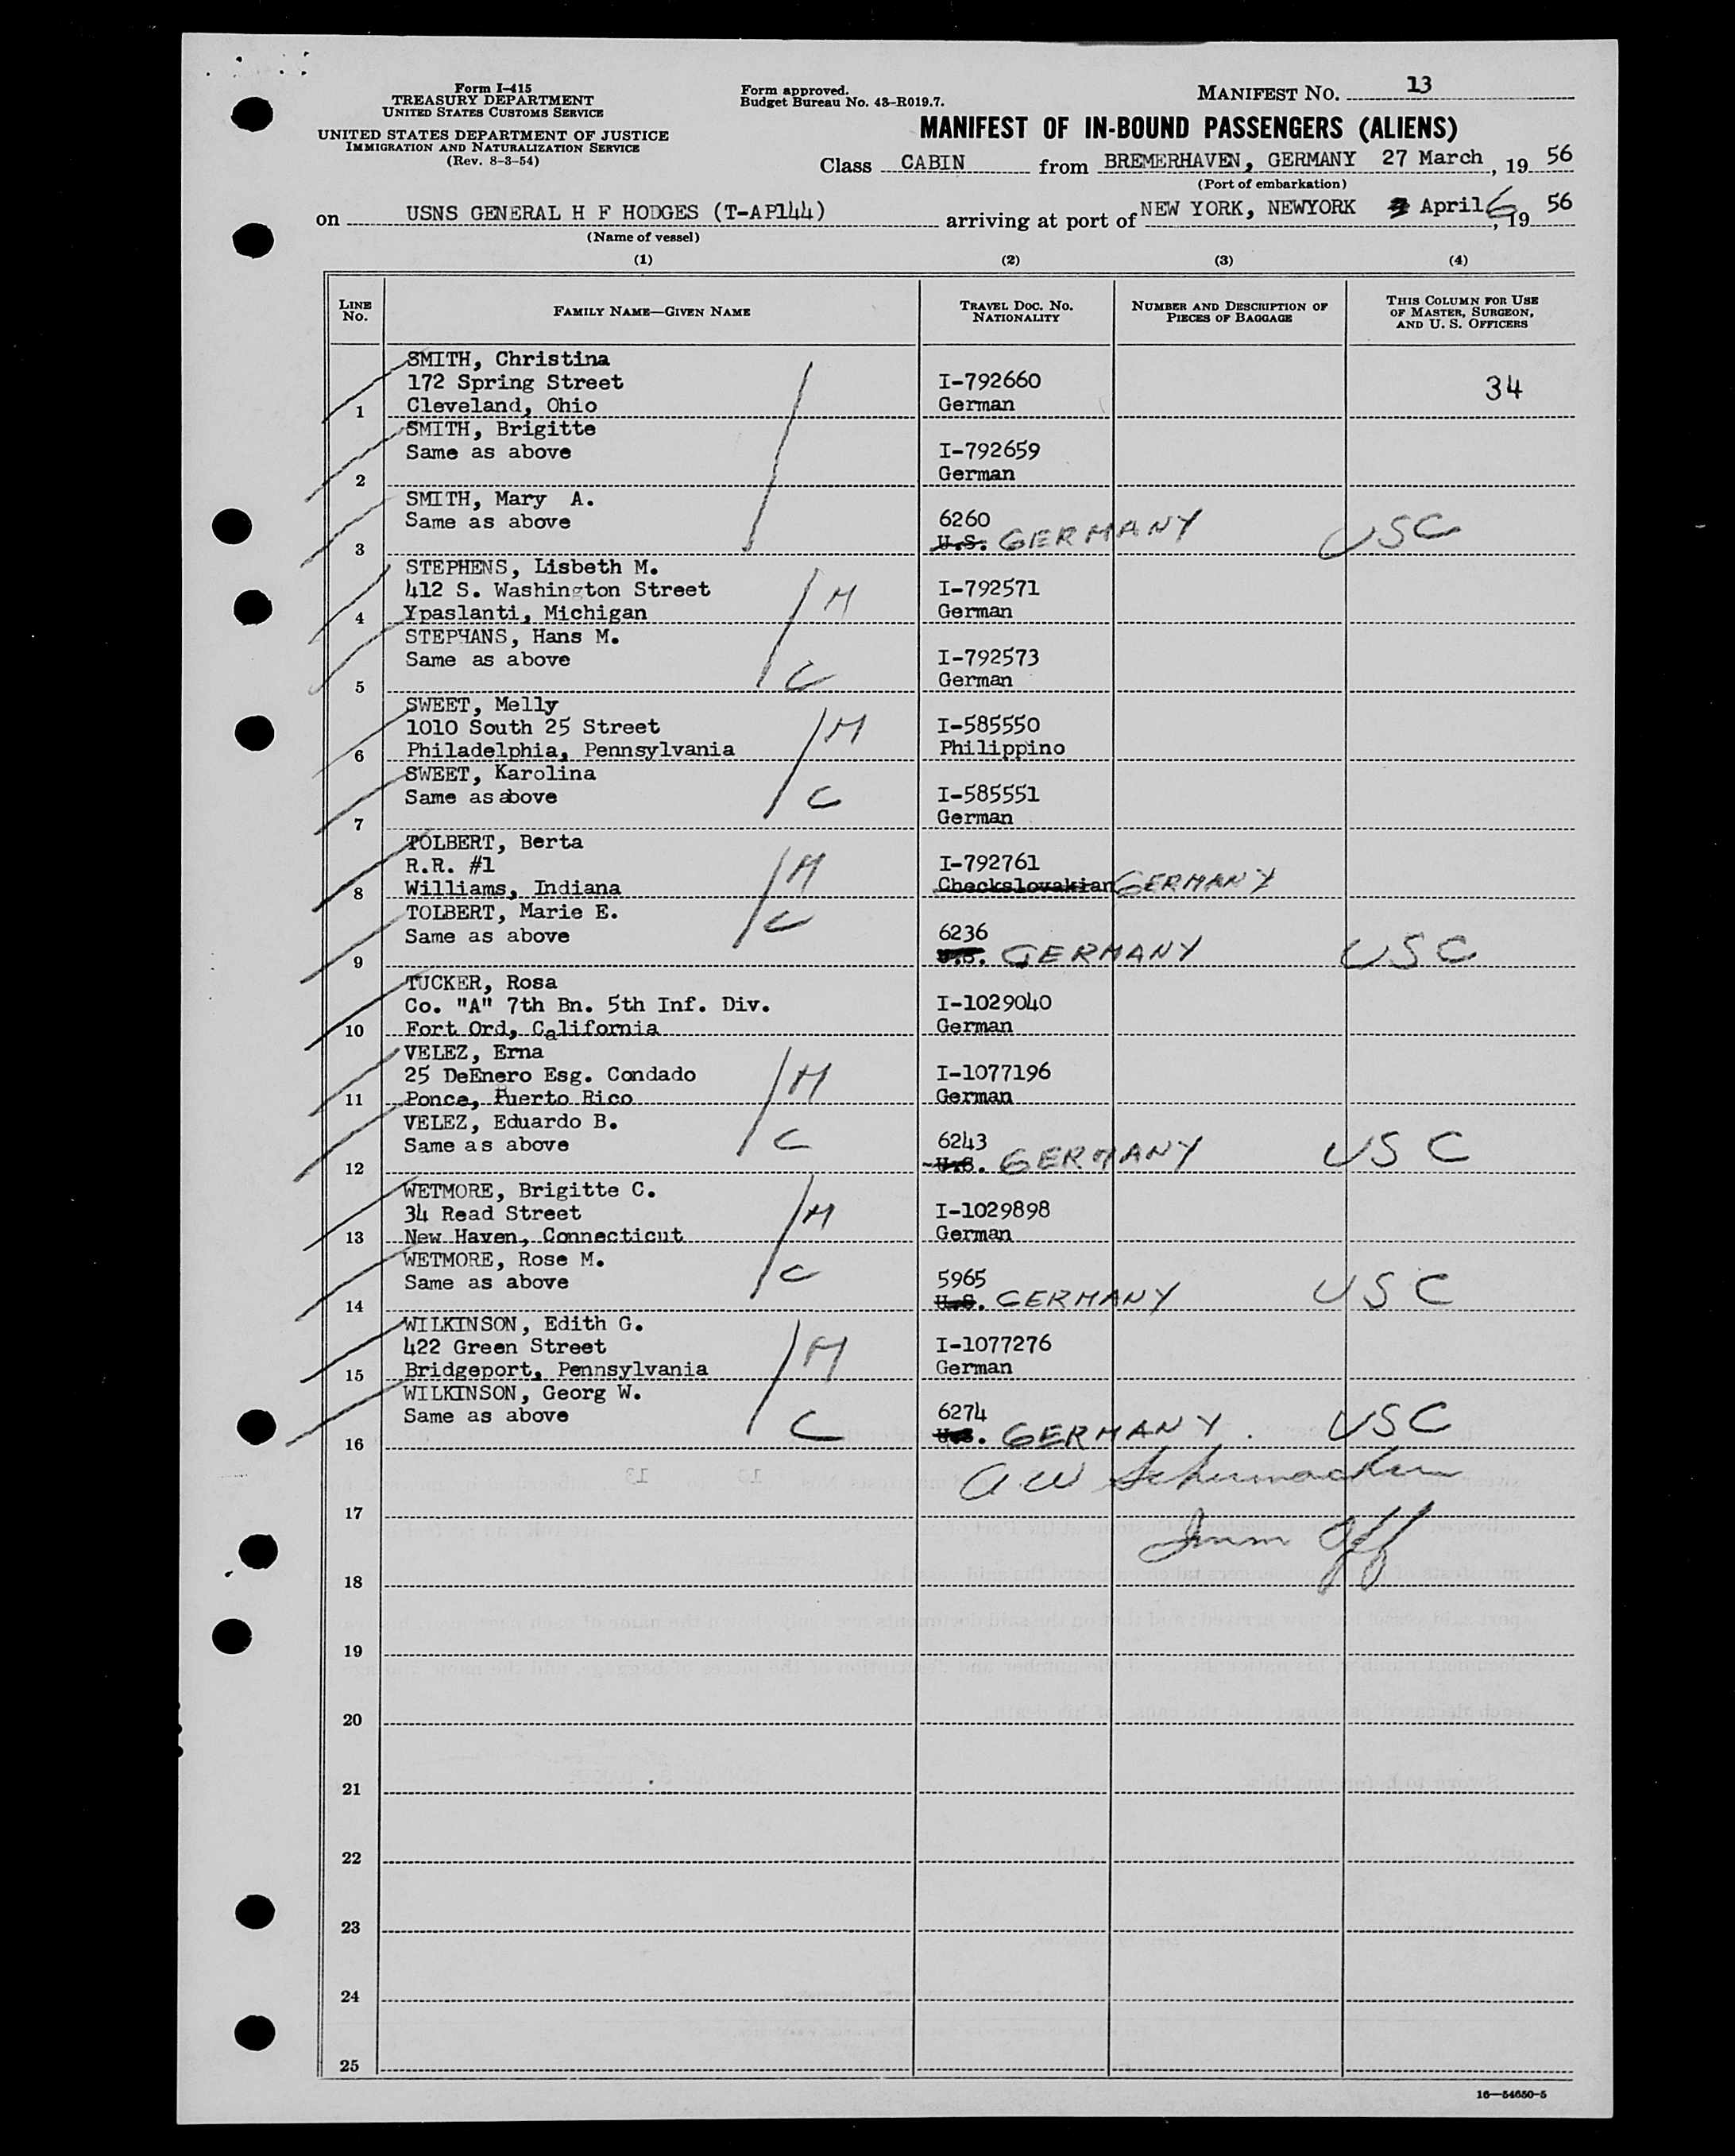 Form I-415
TREASURY DEPARTMENT
UNITED STATES CUSTOMS SERVICE
UNITED STATES DEPARTMENT OF JUSTICE
IMMIGRATION AND NATURALIZATION SERVICE
(Rev. 8-3-54)
Form approved.
Budget Bureau No. 43-R019.7.
MANIFEST NO. 13
MANIFEST OF IN-BOUND PASSENGERS (ALIENS)
Class CABIN from BREMERHAVEN, GERMANY 27 March, 19 56
(Port of embarkation)
on USNS GENERAL H F HODGES (T-AP144) arriving at port of NEW YORK, NEWYORK 3 April 6, 19 56
(Name of vessel)
(1) (2) (3) (4)
LINE NO. FAMILY NAME—GIVEN NAME TRAVEL DOC. NO. NATIONALITY NUMBER AND DESCRIPTION OF PIECES OF BAGGAGE THIS COLUMN FOR USE OF MASTER, SURGEON, AND U. S. OFFICERS
SMITH, Christina
172 Spring Street I-792660 34
1 Cleveland, Ohio German
SMITH, Brigitte
Same as above I-792659
2 German
SMITH, Mary A.
Same as above 6260
3 U.S. GERMANY USC
STEPHENS, Lisbeth M.
412 S. Washington Street M I-792571
4 Ypaslanti, Michigan German
STEPHANS, Hans M.
Same as above I-792573
5 C German
SWEET, Melly
1010 South 25 Street M I-585550
6 Philadelphia, Pennsylvania Philippino
SWEET, Karolina
Same as above C I-585551
7 German
TOLBERT, Berta
R.R. #1 M I-792761
8 Williams, Indiana Checkslovakian GERMANY
TOLBERT, Marie E. C
Same as above 6236
9 U.S. GERMANY USC
TUCKER, Rosa
Co. "A" 7th Bn. 5th Inf. Div. I-1029040
10 Fort Ord, California German
VELEZ, Erna
25 DeEnero Esg. Condado M I-1077196
11 Ponce, Puerto Rico German
VELEZ, Eduardo B.
Same as above C 6243
12 U.S. GERMANY USC
WETMORE, Brigitte C.
34 Read Street M I-1029898
13 New Haven, Connecticut German
WETMORE, Rose M.
Same as above C 5965
14 U.S. GERMANY USC
WILKINSON, Edith G.
422 Green Street M I-1077276
15 Bridgeport, Pennsylvania German
WILKINSON, Georg W.
Same as above C 6274
16 U.S. GERMANY USC
A W Schumacher
17
Imm Off
18
19
20
21
22
23
24
25
16—54650-5